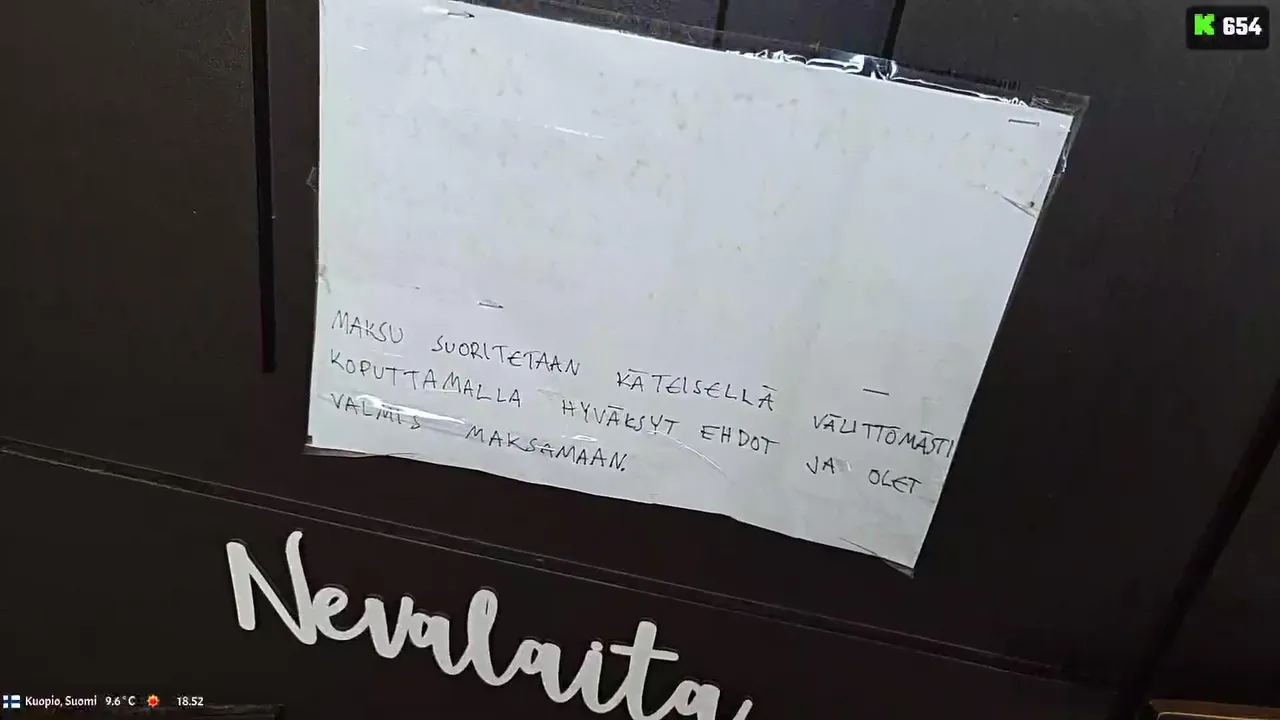 K 654
MAKSU SUORITETAAN KÄTEISELLÄ — VÄLITTÖMÄSTI
KOPUTTAMALLA HYVÄKSYT EHDOT JA OLET
VALMIS MAKSAMAAN.
Nevalaita
Kuopio, Suomi 9.6°C 18.52